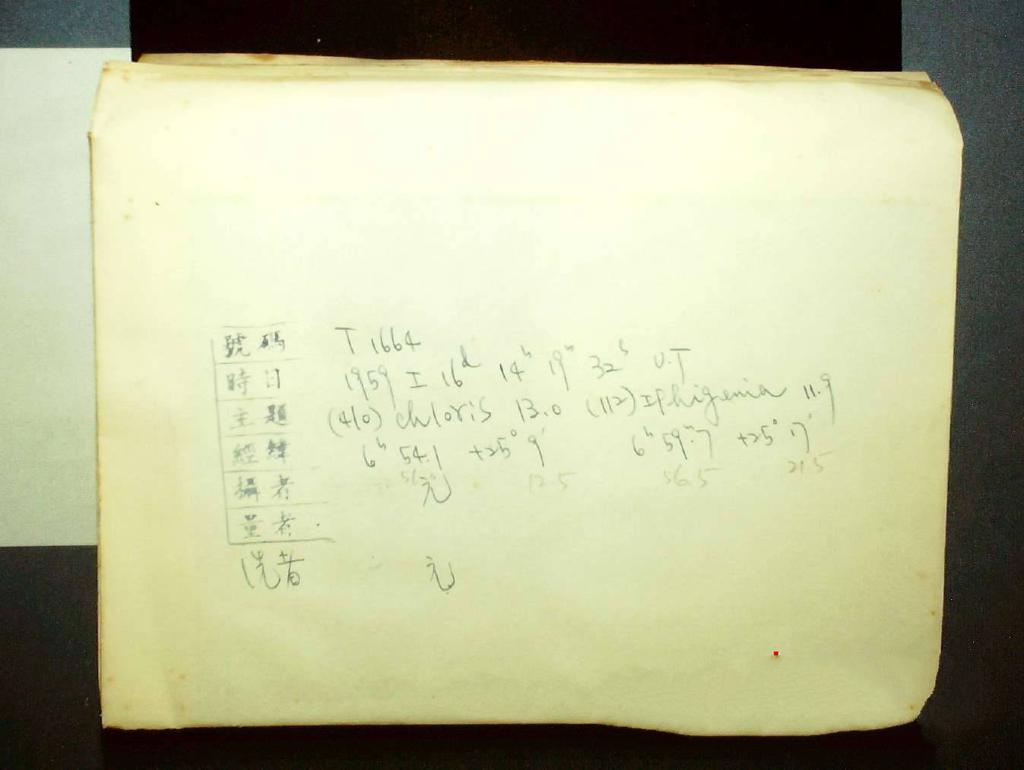 號碼 T 1664
時日 1959 I 16d 14h 19m 32s U.T
主題 (410) chloris 13.0 (112) Iphigenia 11.9
經緯 6h 54.1 +25° 9' 6h 59m.7 +25° 17'
12.5 56.5 21.5
攝者 元
量者
洗者 元